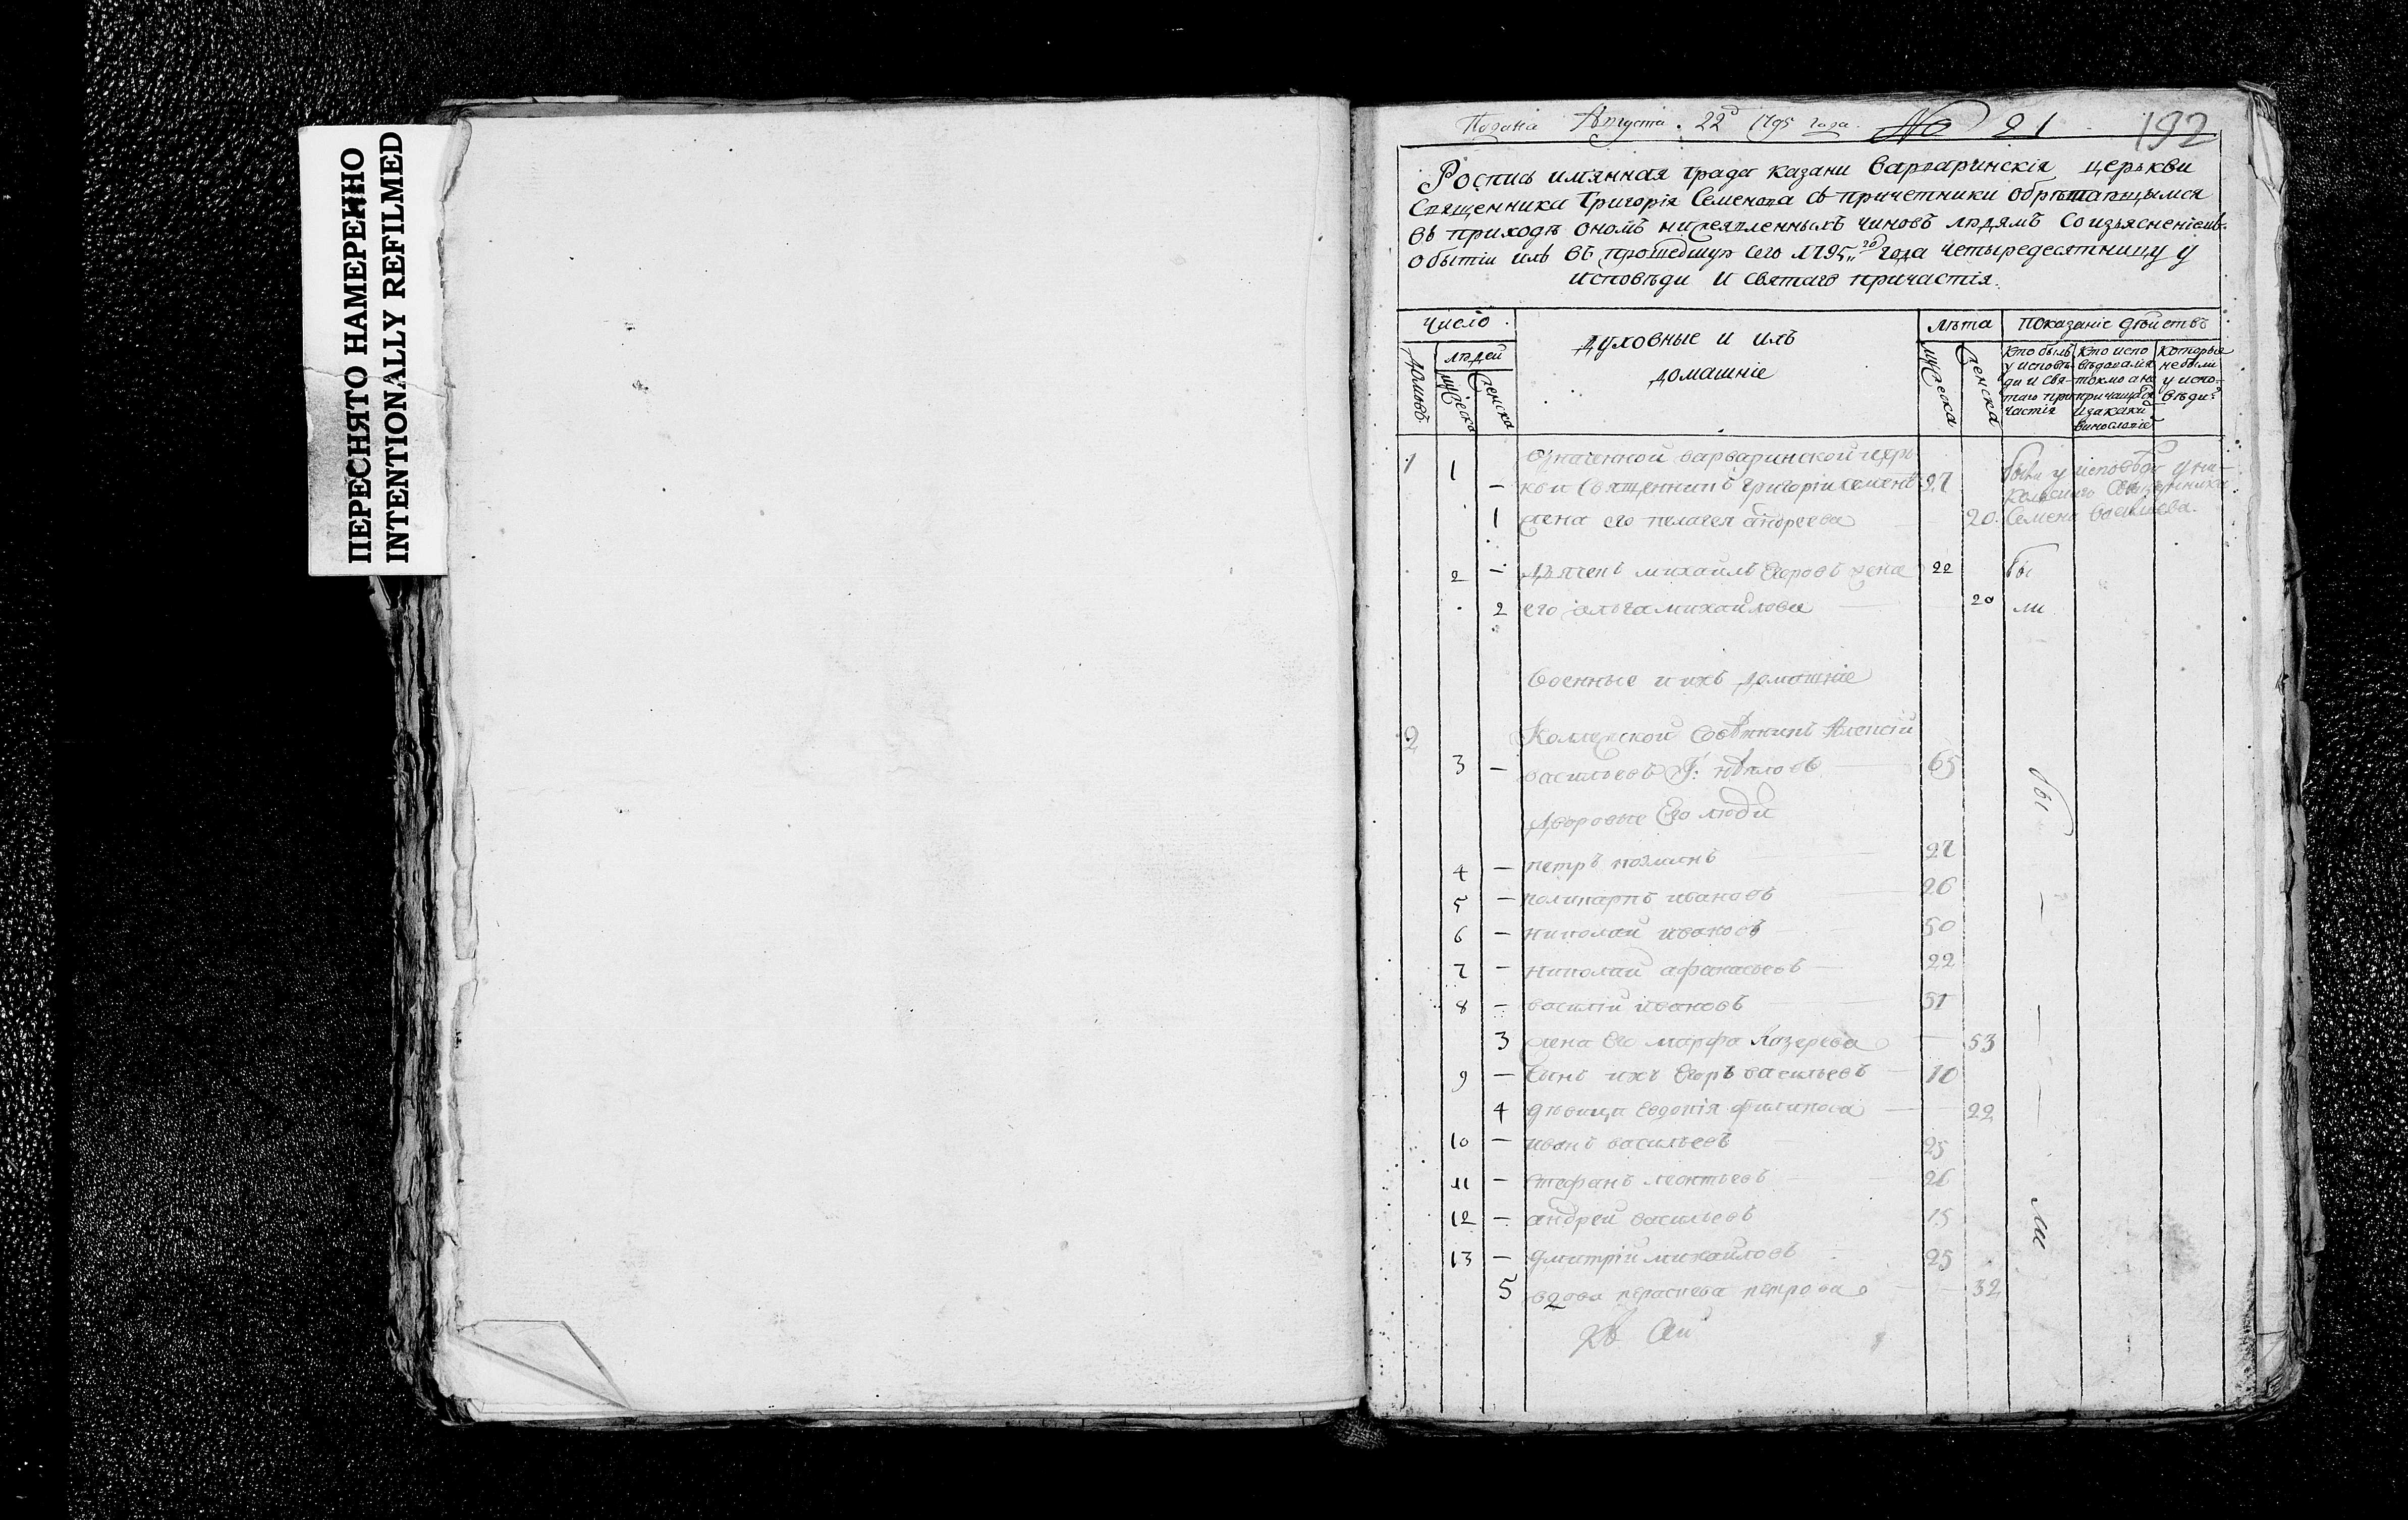 ПЕРЕСНЯТО НАМЕРЕННО
INTENTIONALLY REFILMED
Подана Августа 22 1795 года № 21 192
Роспись имянная града казани варваринскiя церькви
священника григорiя семенова съ причетники обрѣтающымся
въ приходѣ ономъ нижеявленныхъ чиновъ людямъ со изьясненiемъ
о бытiи ихъ въ прошедшую сего 1795 го года четыредесятницу у
исповѣди и святаго причастiя.
число
домовъ
людей
мужеска
женска
духовные и ихъ
домашнiе
лѣта
мужеска
женска
показанiе дѣйствъ
кто былъ
у исповѣ
ди и свя-
таго при
частiя
кто испо
вѣдовался
токмо а не
причащался
и за каки
винословiе
которые
не были
у испо-
вѣди
1 1 означенной варваринской церь
кви священникъ григорiи семеновъ 27 были у исповѣди у ни-
кольского священника
1 жена его пелагея андреева 20 семена васильева.
2 — дьячекъ михаилъ егоровъ жена 22 бы
2 его ольга михаилова 20 ли
военные и ихъ домашнiе
2 Коллежской совѣтникъ Алексiй
3 — васильевъ 65 бы
дворовые его люди
4 — петръ 27
5 — поликарпъ ивановъ 26 —
6 — николай ивановъ 50
7 — николай афанасьевъ 22
8 — василiи ивановъ 51 —
3 жена его марфа 53
9 — сынъ ихъ егоръ васильевъ 10
4 девица евдокiя филипова 22
10 — иванъ васильевъ 25
11 — стефанъ леонтьевъ 26
12 — андрей васильевъ 15 ли
13 — дмитрiи михайловъ 25
5 вдова параскева петрова 32